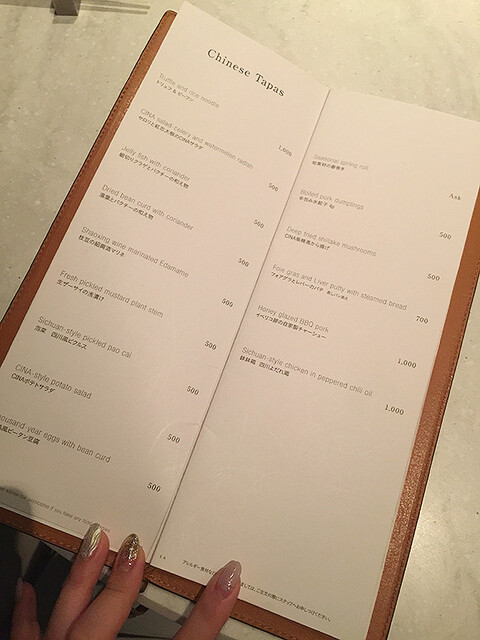 Chinese Tapas
Truffle and rice noodle
トリュフ＆ビーフン
1,600
CINA salad-celery and watermelon radish
セロリと紅芯大根のCINAサラダ
500
Jelly fish with coriander
細切りクラゲとパクチーの和え物
500
Dried bean curd with coriander
湯葉とパクチーの和え物
500
Shaoxing wine marinated Edamame
枝豆の紹興酒マリネ
500
Fresh pickled mustard plant stem
生ザーサイの浅漬け
500
Sichuan-style pickled pao cai
泡菜 四川風ピクルス
500
CINA-style potato salad
CINAポテトサラダ
500
thousand-year eggs with bean curd
風ピータン豆腐
500
Seasonal spring roll
旬素材の春巻き
Ask
Boiled pork dumplings
手包み水餃子 4p
500
Deep fried shiitake mushrooms
CINA風椎茸から揚げ
500
Foie gras and Liver putty with steamed bread
フォアグラとレバーのパテ 蒸しパン添え
700
Honey glazed BBQ pork
イベリコ豚の自家製チャーシュー
1,000
Sichuan-style chicken in peppered chili oil
鉢鉢鶏 四川よだれ鶏
1,000
if you have any
アレルギー食材な
ましては、ご注文の際にスタッフへお申しつけください。